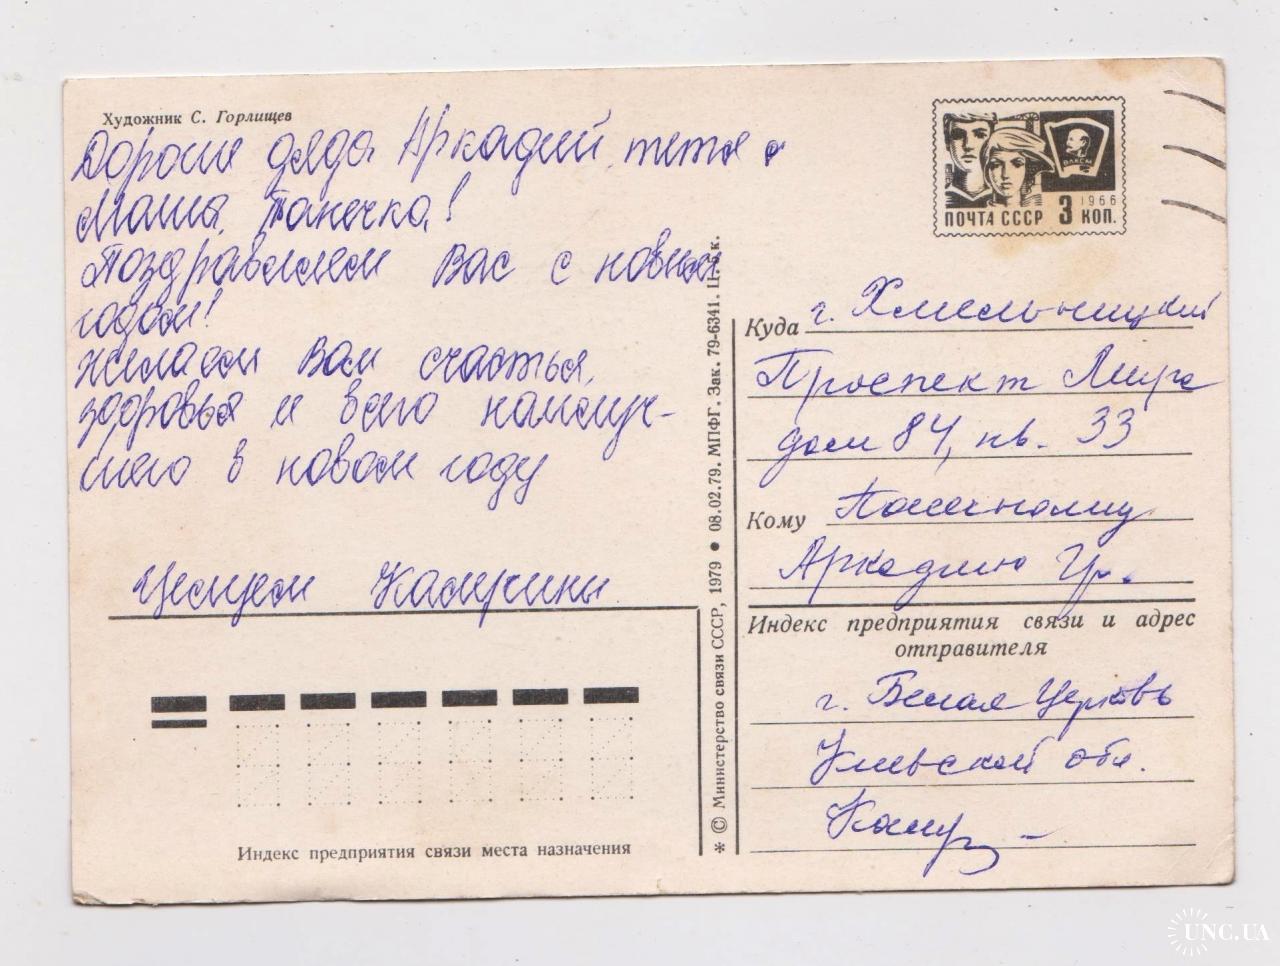 Художник С. Горлищев
Дорогие дядя Аркадий, тетя
Маша, Танечка!
Поздравляем Вас с новым
годом!
Желаем Вам счастья,
здоровья и всего наилуч-
шего в новом году
Целуем
ВЛКСМ
1966
ПОЧТА СССР 3 КОП.
Куда г. Хмельницкий
Проспект Мира
дом 84, кв. 33
Кому Пасечному
Аркадию Гр.
Индекс предприятия связи и адрес
отправителя
г. Белая Церковь
Киевской обл.
Индекс предприятия связи места назначения
* © Министерство связи СССР, 1979 • 08.02.79. МПФГ. Зак. 79-6341. Ц. к.
UNC.UA